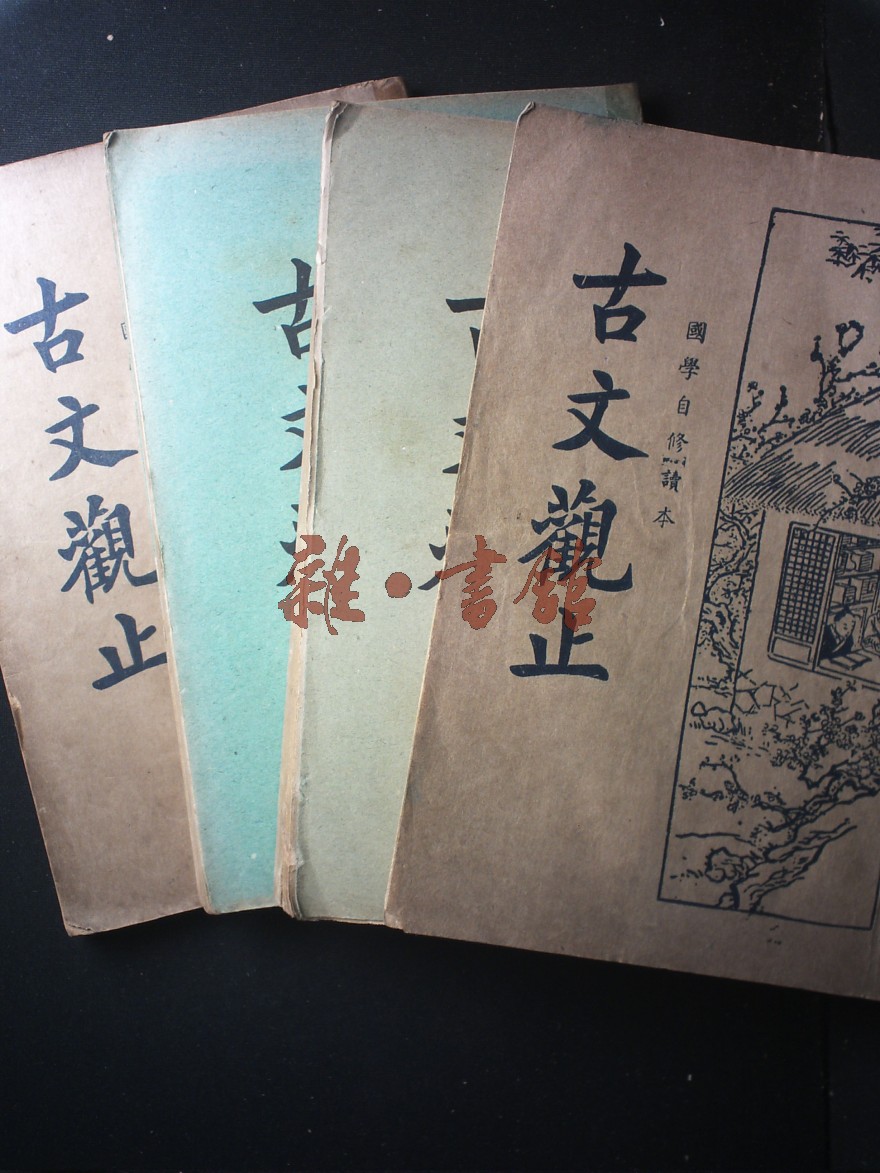 古文觀止
古
古文觀止
國學自修讀本
雜·書館